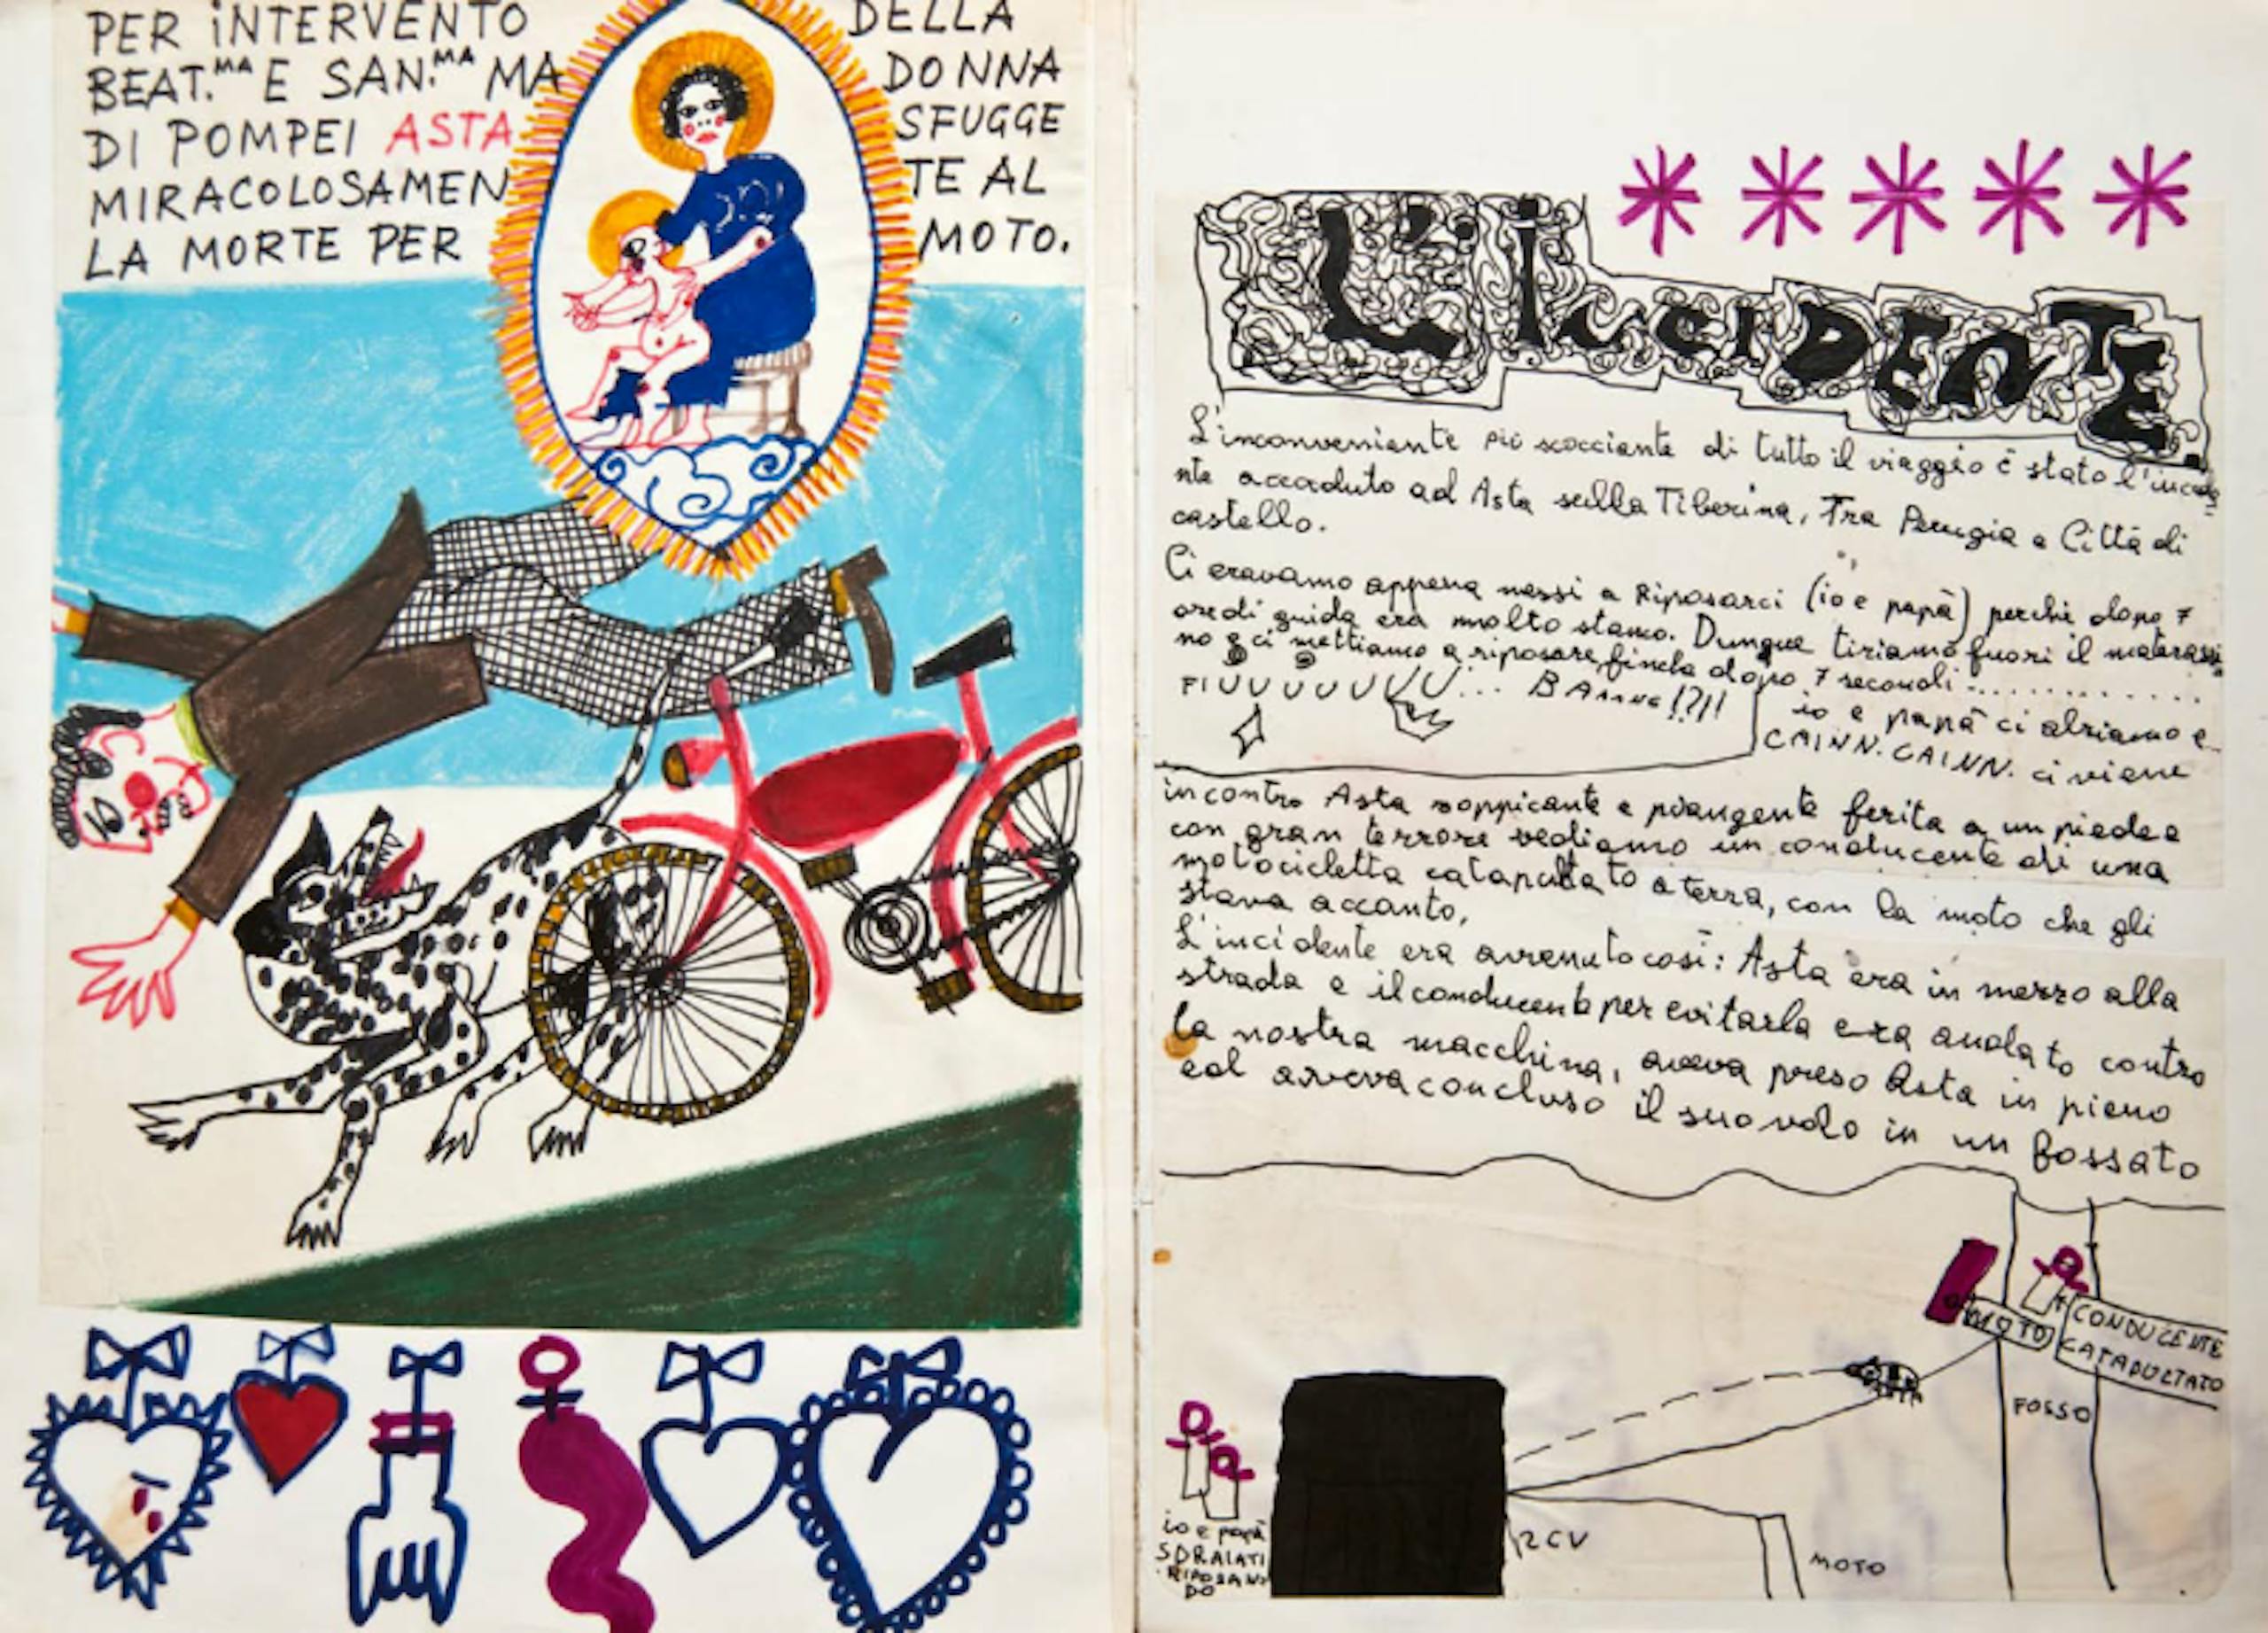 PER INTERVENTO DELLA
BEAT.MA E SAN.MA MA DONNA
DI POMPEI ASTA SFUGGE
MIRACOLOSAMEN TE AL
LA MORTE PER MOTO.
L'INCIDENTE.
L'inconveniente più scocciante di tutto il viaggio è stato l'incide
nte accaduto ad Asta sulla Tiberina, Fra Perugia e Città di
castello.
Ci eravamo appena messi a Riposarci (io e papà) perchè dopo 7
ore di guida era molto stanco. Dunque tiriamo fuori il materassi
no e ci mettiamo a riposare, finchè dopo 7 secondi..............
FIUUUUUUU... BANNG!?!!
io e papà ci alziamo e
CAINN. CAINN. ci viene
incontro Asta zoppicante e piangente ferita a un piede e
con gran terrore vediamo un conducente di una
motocicletta catapultato a terra, con la moto che gli
stava accanto,
L'incidente era avvenuto così: Asta era in mezzo alla
strada e il conducente per evitarla era andato contro
la nostra macchina, aveva preso Asta in pieno
ed aveva concluso il suo volo in un fossato
MOTO
CONDUCENTE
CATAPULTATO
FOSSO
io e papà
SDRAIATI
RIPOSAN
DO
2CV
MOTO